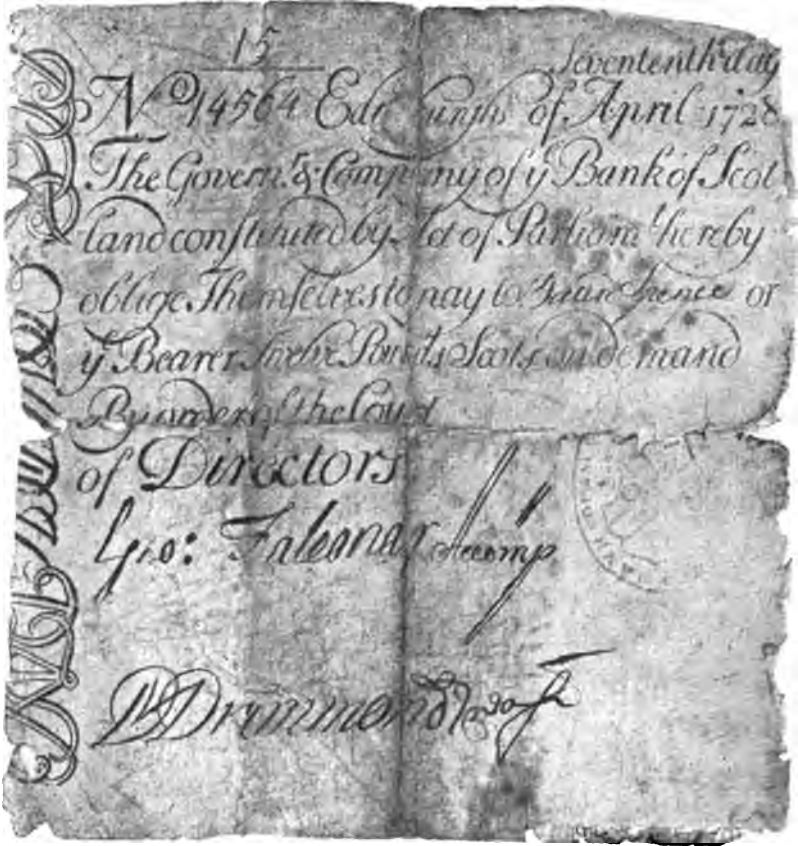 15
Sevententh day
No 14564 Edinburgh of April 1728
The Govern.r & Company of ye Bank of Scot
land constituted by Act of Parliamt hereby
oblige Themselves to pay to or
ye Bearer Twelve Pounds Scots on demand
By order of the Court
of Directors
Geo: Falconar Accomp
Drummond